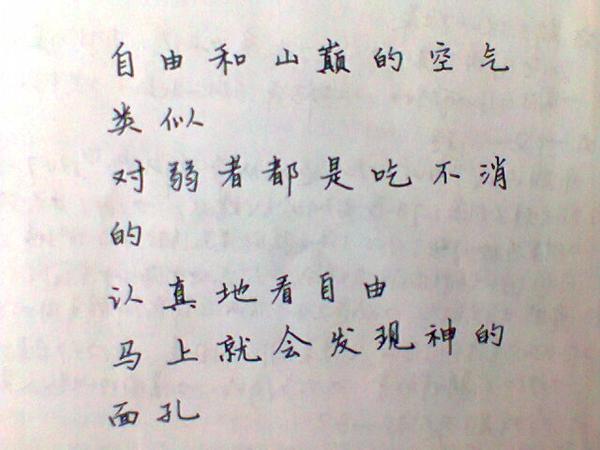 自由和山巅的空气
类似
对弱者都是吃不消
的
认真地看自由
马上就会发现神的
面孔